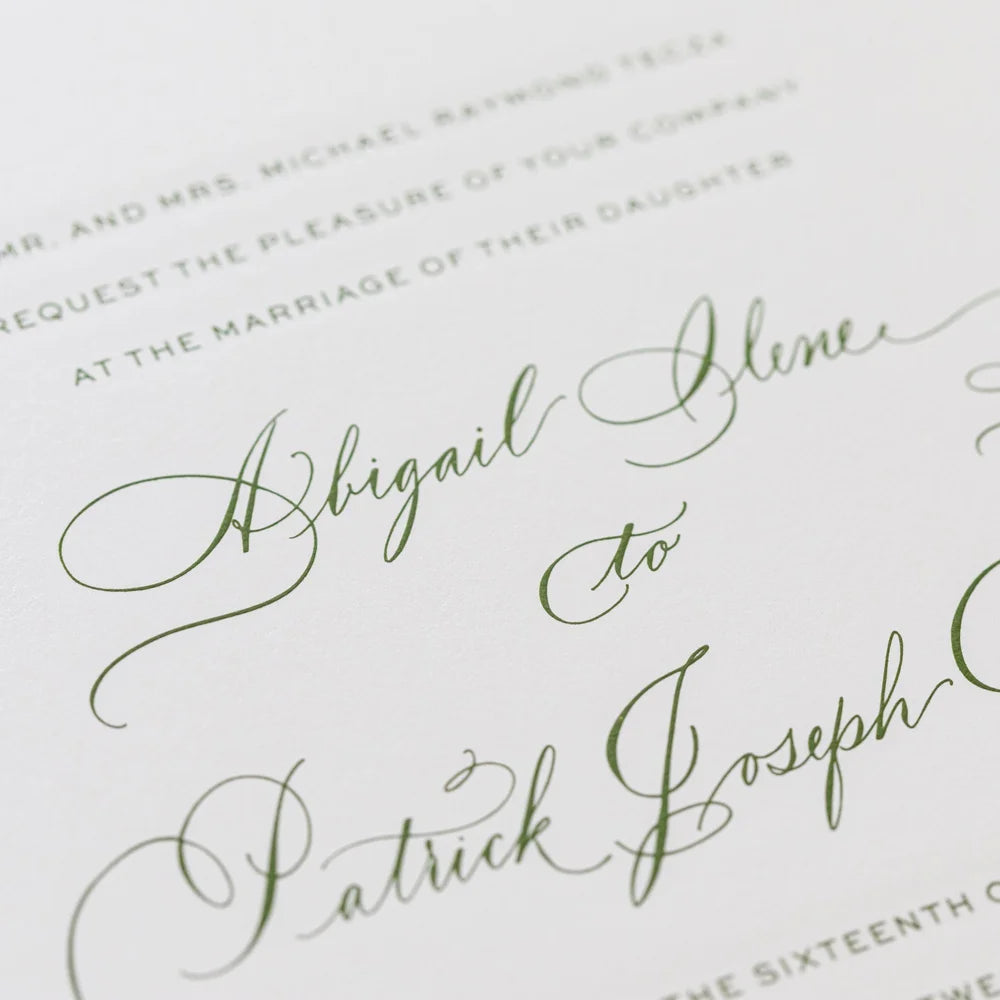 MR. AND MRS. MICHAEL RAYMOND TECZA
REQUEST THE PLEASURE OF YOUR COMPANY
AT THE MARRIAGE OF THEIR DAUGHTER
Abigail Ilene
to
Patrick Joseph
THE SIXTEENTH